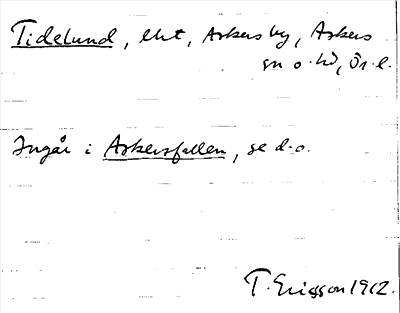 Tidelund, lht, Askersby, Askers
sn o. hd, Ör. l.
Ingår i Askersfallen, se d.o.
T. Ericsson 1912.